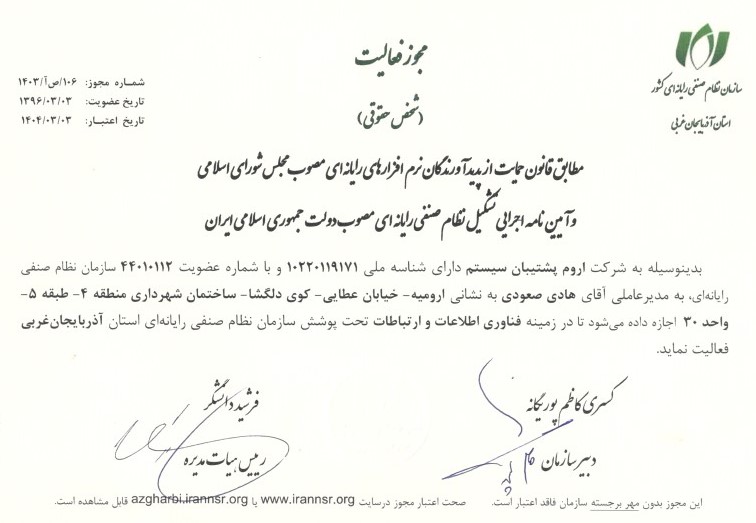 مجوز فعالیت
(شخص حقوقی)
سازمان نظام صنفی رایانه ای کشور
استان آذربایجان غربی
شماره مجوز: ۱۰۶/ص/آ/۱۴۰۳
تاریخ عضویت: ۱۳۹۶/۰۳/۰۳
تاریخ اعتبار: ۱۴۰۴/۰۳/۰۳
مطابق قانون حمایت از پدیدآورندگان نرم افزارهای رایانه ای مصوب مجلس شورای اسلامی
و آیین نامه اجرایی تشکیل نظام صنفی رایانه ای مصوب دولت جمهوری اسلامی ایران
بدینوسیله به شرکت اروم پشتیبان سیستم دارای شناسه ملی ۱۰۲۲۰۱۱۹۱۷۱ و با شماره عضویت ۴۴۰۱۰۱۱۲ سازمان نظام صنفی
رایانه‌ای، به مدیرعاملی آقای هادی صعودی به نشانی ارومیه- خیابان عطایی- کوی دلگشا- ساختمان شهرداری منطقه ۴- طبقه ۵-
واحد ۳۰ اجازه داده می‌شود تا در زمینه فناوری اطلاعات و ارتباطات تحت پوشش سازمان نظام صنفی رایانه‌ای استان آذربایجان‌غربی
فعالیت نماید.
کسری کاظم پوریگانه
دبیر سازمان
فرشید دانشگر
رییس هیات مدیره
این مجوز بدون مهر برجسته سازمان فاقد اعتبار است. صحت اعتبار مجوز درسایت www.irannsr.org یا azgharbi.irannsr.org قابل مشاهده است.